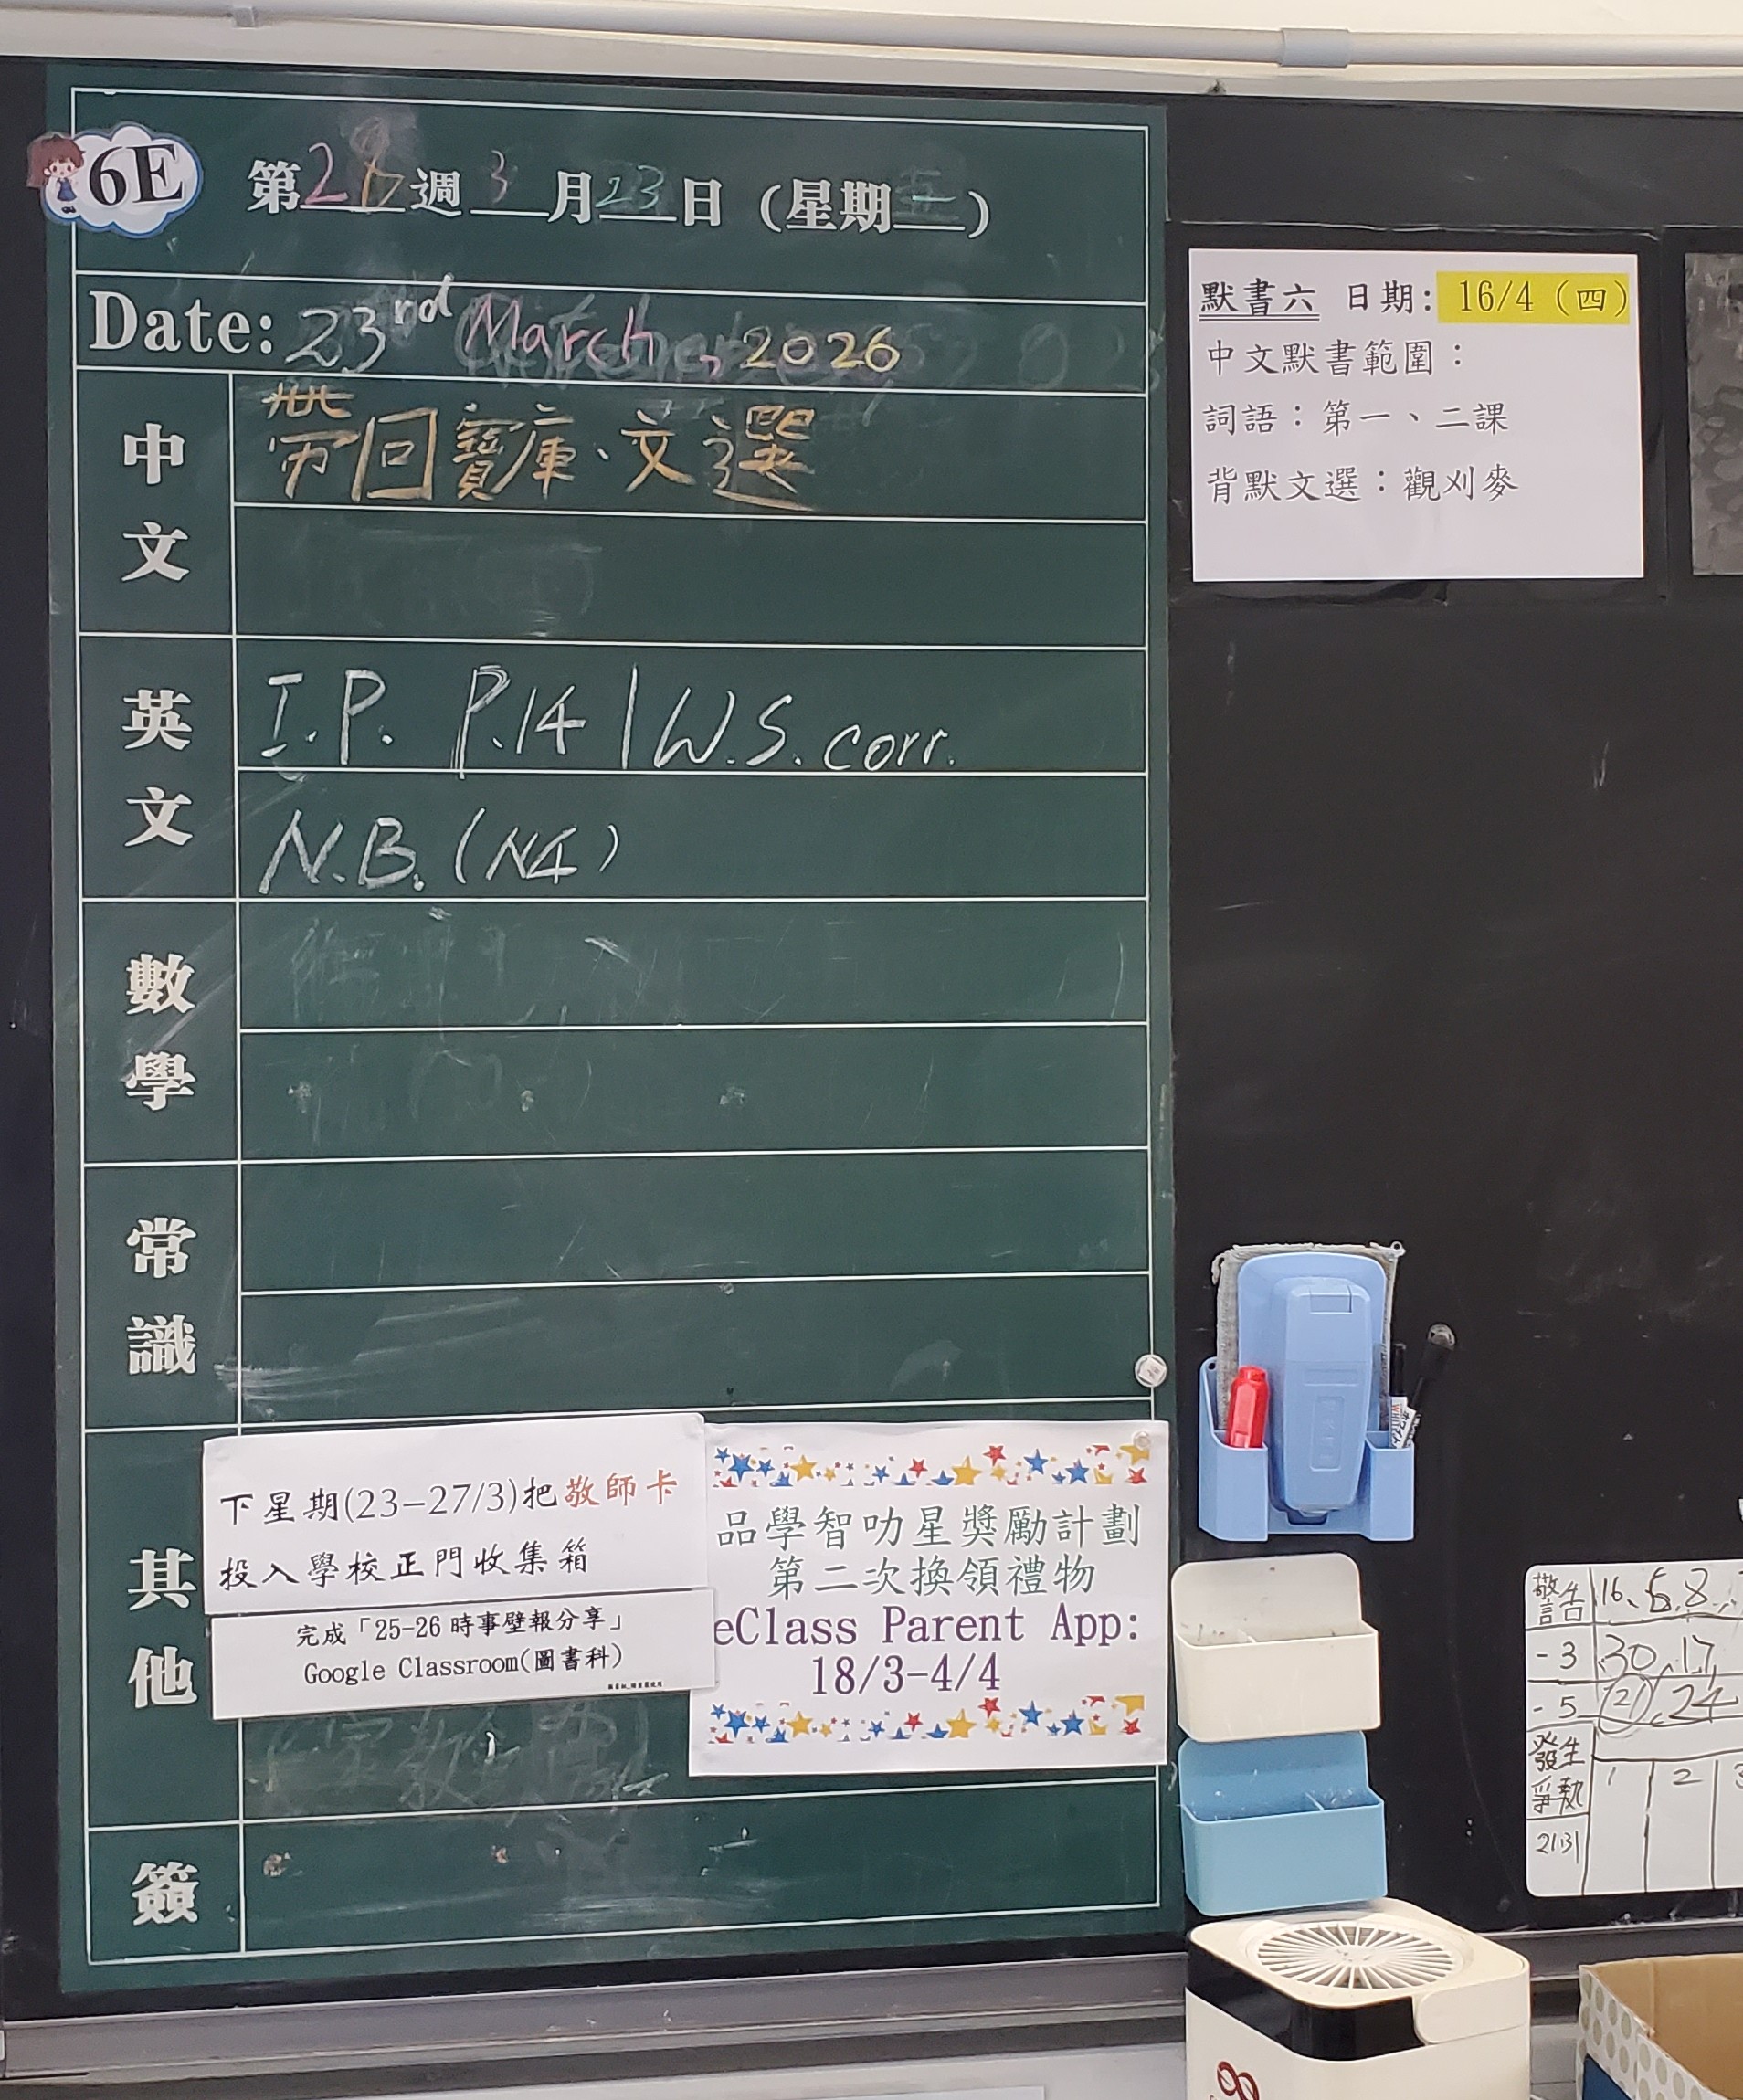 6E
第2週3月23日(星期五)
Date: 23rd March, 2026
中文
帶回寶庫、文選
英文
I.P. P.14 | W.S. corr.
N.B. (N4)
數學
常識
其他
下星期(23-27/3)把敬師卡
投入學校正門收集箱
完成「25-26 時事壁報分享」
Google Classroom(圖書科)
品學智叻星獎勵計劃
第二次換領禮物
eClass Parent App:
18/3-4/4
簽
默書六 日期: 16/4 (四)
中文默書範圍：
詞語：第一、二課
背默文選：觀刈麥
警告 16、5、8
-3 30、17
-5 21、24
發生爭執 1 2 3